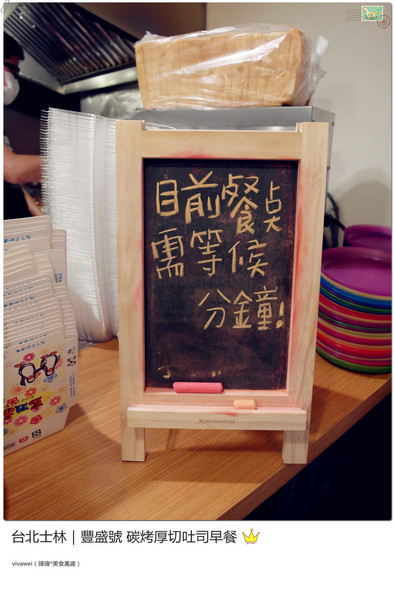 目前餐点
需等候
分鐘!
台北士林｜豐盛號 碳烤厚切吐司早餐
vivawei（瑋瑋*美食萬歲）